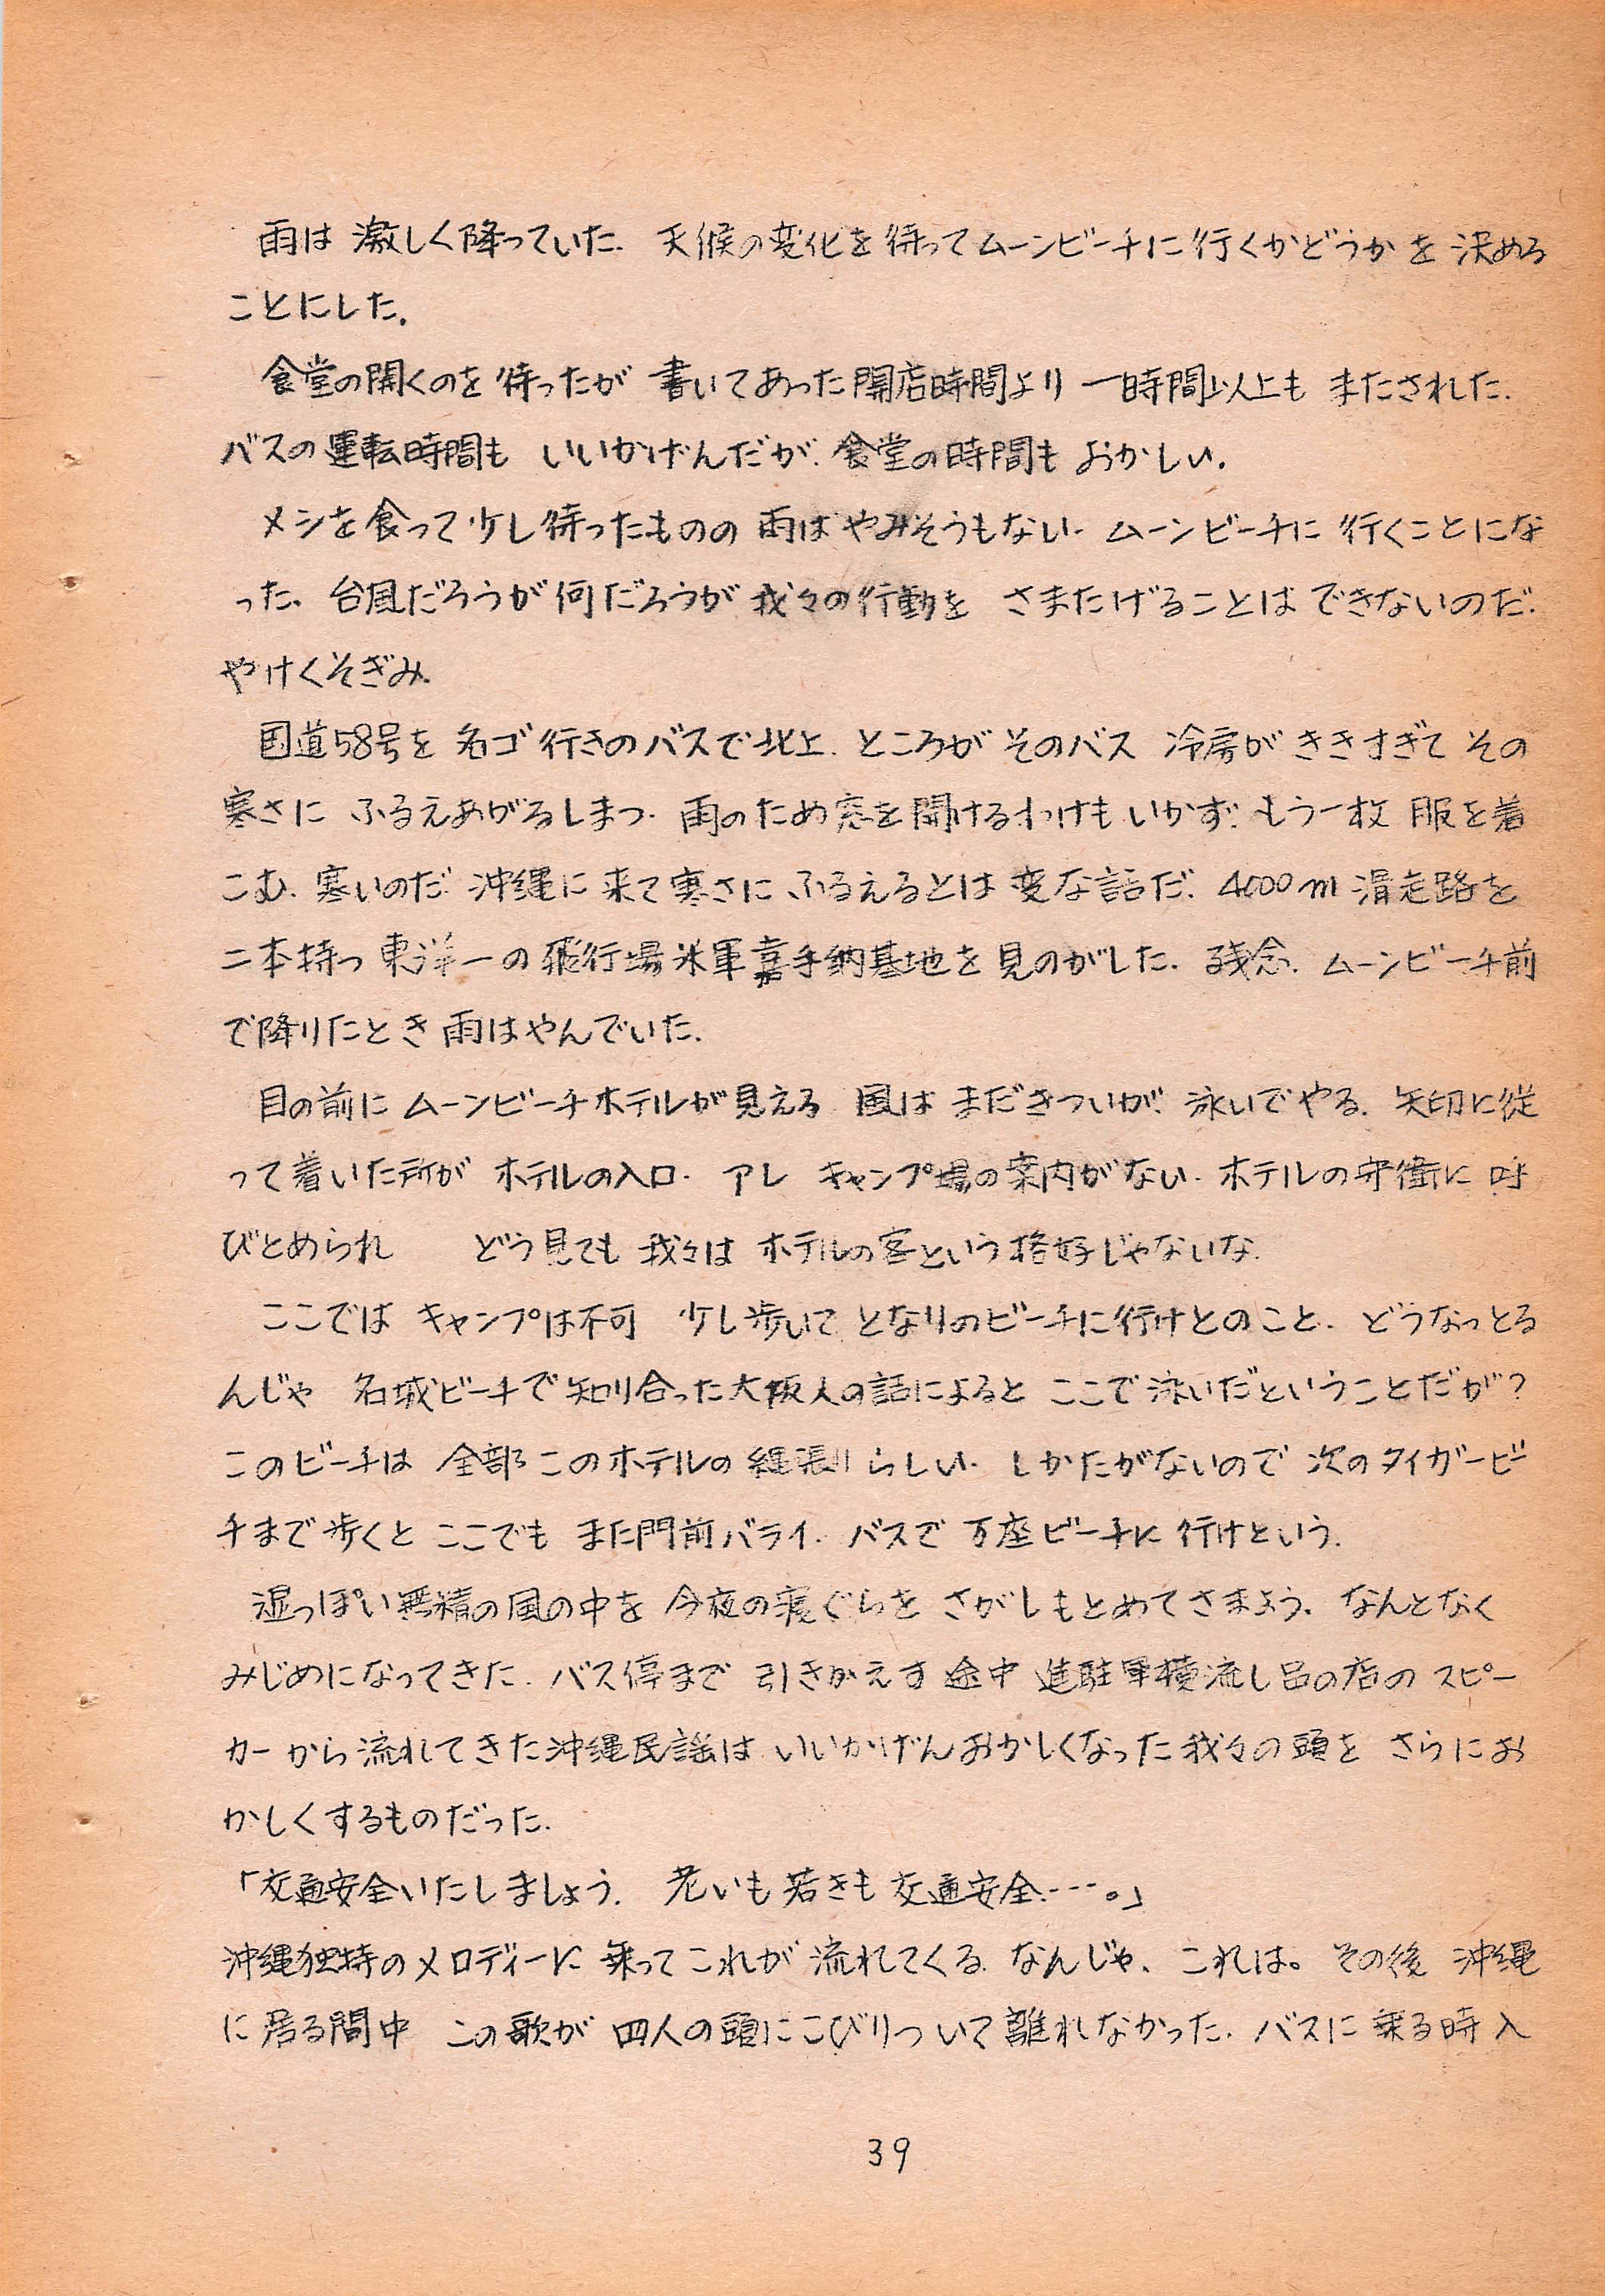 雨は激しく降っていた. 天候の変化を待ってムーンビーチに行くかどうかを決める
ことにした.
食堂の開くのを待ったが 書いてあった開店時間より一時間以上も またされた.
バスの運転時間も いいかげんだが. 食堂の時間も おかしい.
メシを食って少し待ったものの 雨はやみそうもない. ムーンビーチに 行くことにな
った. 台風だろうが何だろうが 我々の行動を さまたげることは できないのだ.
やけくそぎみ.
国道58号を 名ゴ行きのバスで北上. ところが そのバス 冷房が ききすぎて その
寒さに ふるえあがるしまつ. 雨のため窓を開けるわけもいかず. もう一枚 服を着
こむ. 寒いのだ 沖縄に来て寒さに ふるえるとは 変な話だ. 4000m 滑走路を
二本持つ 東洋一の飛行場米軍嘉手納基地を見のがした. 残念. ムーンビーチ前
で降りたとき雨はやんでいた.
目の前に ムーンビーチホテルが見える 風は まだきついが. 泳いでやる. 矢印に従
って着いた所が ホテルの入口. アレ キャンプ場の案内がない. ホテルの守衛に呼
びとめられ どう見ても 我々は ホテルの客という格好じゃないな.
ここでは キャンプは不可 少し歩いて となりのビーチに行けとのこと. どうなっとる
んじゃ 名城ビーチで知り合った大阪人の話によると ここで泳いだということだが?
このビーチは 全部このホテルの縄張りらしい. しかたがないので 次のタイガービー
チまで歩くと ここでも また門前バライ. バスで 万座ビーチに行けという.
湿っぽい無精の風の中を 今夜の寝ぐらを さがしもとめてさまよう. なんとなく
みじめになってきた. バス停まで 引きかえす途中 進駐軍横流し品の店の スピー
カーから流れてきた沖縄民謡は いいかげんおかしくなった我々の頭を さらにお
かしくするものだった.
「交通安全いたしましょう. 老いも若きも交通安全----。」
沖縄独特のメロディーに 乗ってこれが 流れてくる. なんじゃ、これは。その後 沖縄
に居る間中 この歌が 四人の頭にこびりついて離れなかった. バスに乗る時入
39